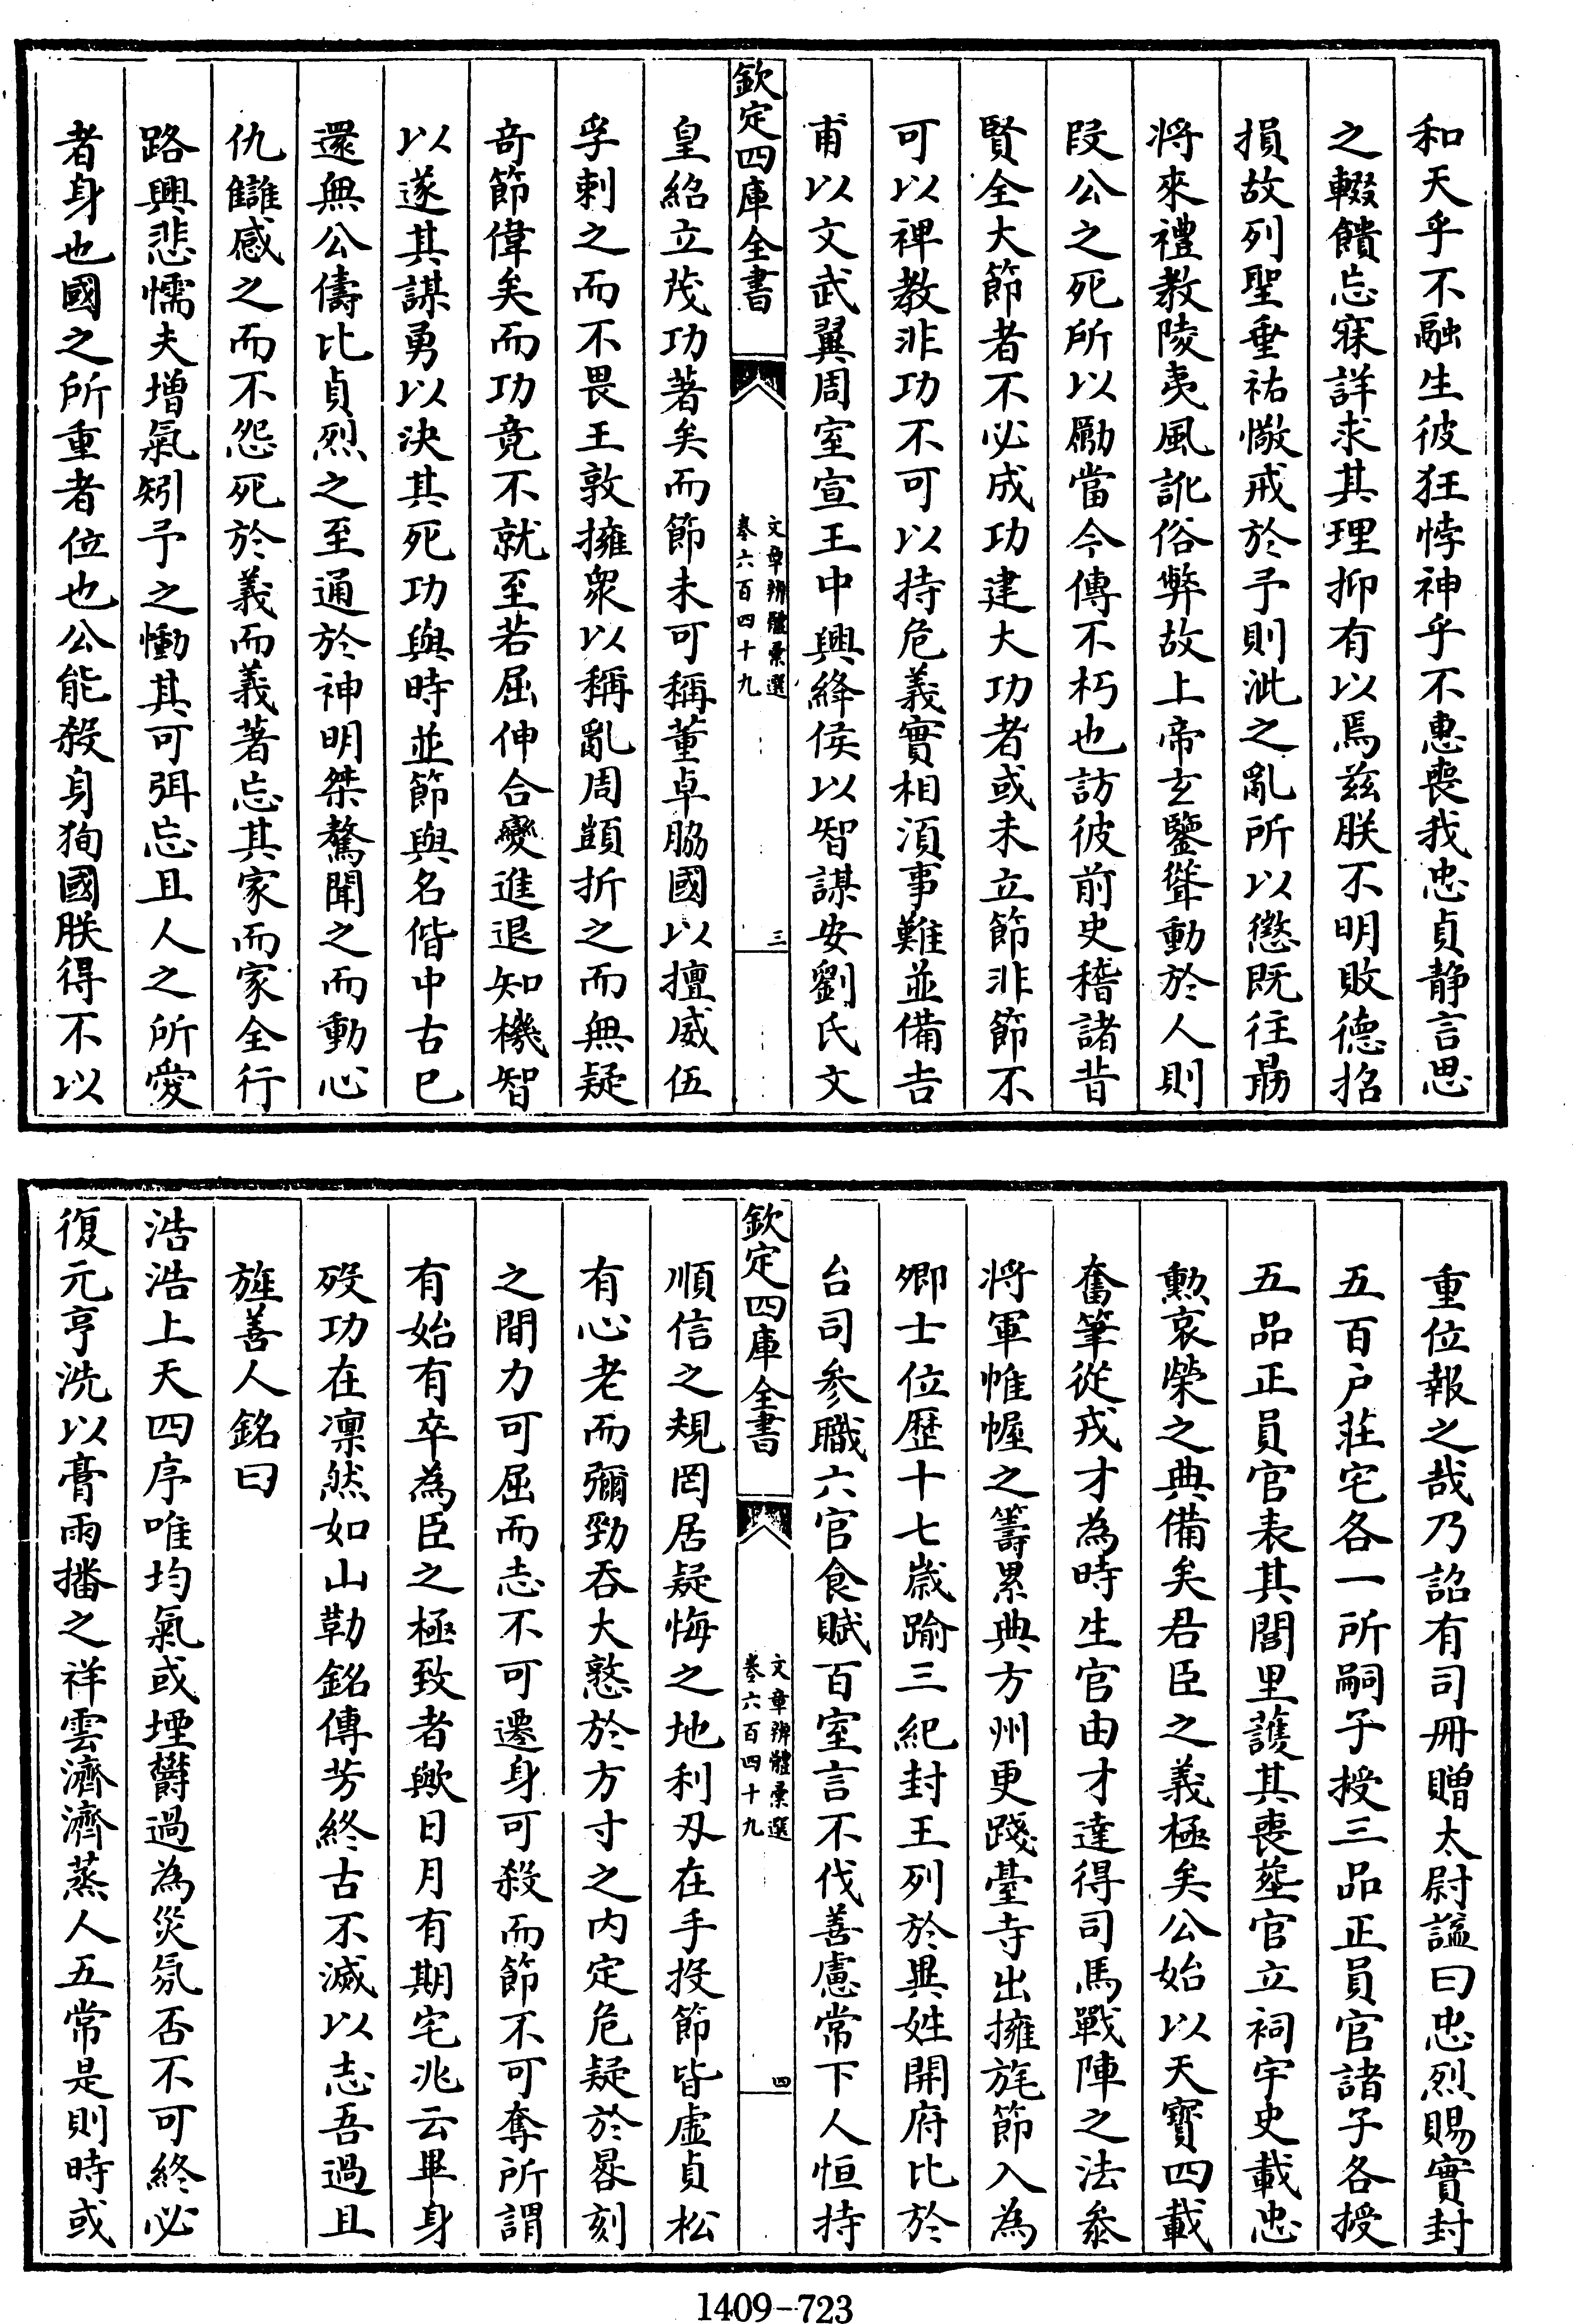 和天乎不融生彼狂悖神乎不惠喪我忠貞静言思
之輟饋忘寐詳求其理抑有以焉兹朕不明敗德招
損故列聖垂祐儆戒於予則泚之亂所以懲既往朂
将來禮教陵夷風訛俗弊故上帝玄鑒聳動於人則
段公之死所以勵當今傳不朽也訪彼前史稽諸昔
賢全大節者不必成功建大功者或未立節非節不
可以禆教非功不可以持危義實相湏事難並備吉
甫以文武翼周室宣王中興絳侯以智謀安劉氏文
欽定四庫全書
文章辨體彚選
卷六百四十九
三
皇紹立茂功著矣而節未可稱董卓脇國以擅威伍
孚刺之而不畏王敦擁衆以稱亂周顗折之而無疑
奇節偉矣而功竟不就至若屈伸合變進退知機智
以遂其謀勇以決其死功與時並節與名偕中古巳
還無公儔比貞烈之至通於神明桀驁聞之而動心
仇讎感之而不怨死於義而義著忘其家而家全行
路興悲懦夫增氣矧予之慟其可弭忘且人之所愛
者身也國之所重者位也公能殺身狥國朕得不以
重位報之哉乃詔有司冊贈太尉諡曰忠烈賜實封
五百户莊宅各一所嗣子授三品正員官諸子各授
五品正員官表其閭里䕶其喪塟官立祠宇史載忠
勲哀榮之典備矣君臣之義極矣公始以天寳四載
奮筆從戎才為時生官由才達得司馬戰陣之法叅
将軍帷幄之籌累典方州更踐臺寺出擁旄節入為
卿士位歴十七歲踰三紀封王列於異姓開府比於
台司參職六官食賦百室言不伐善慮常下人恒持
欽定四庫全書
文章辨體彚選
卷六百四十九
四
順信之規罔居疑悔之地利刃在手投節皆虚貞松
有心老而彌勁吞大憝於方寸之内定危疑於晷刻
之間力可屈而志不可遷身可殺而節不可奪所謂
有始有卒為臣之極致者歟日月有期宅兆云畢身
殁功在凛然如山勒銘傳芳終古不滅以志吾過且
旌善人銘曰
浩浩上天四序唯均氣或堙欝過為災氛否不可終必
復元亨洗以膏雨播之祥雲濟濟蒸人五常是則時或
1409-723